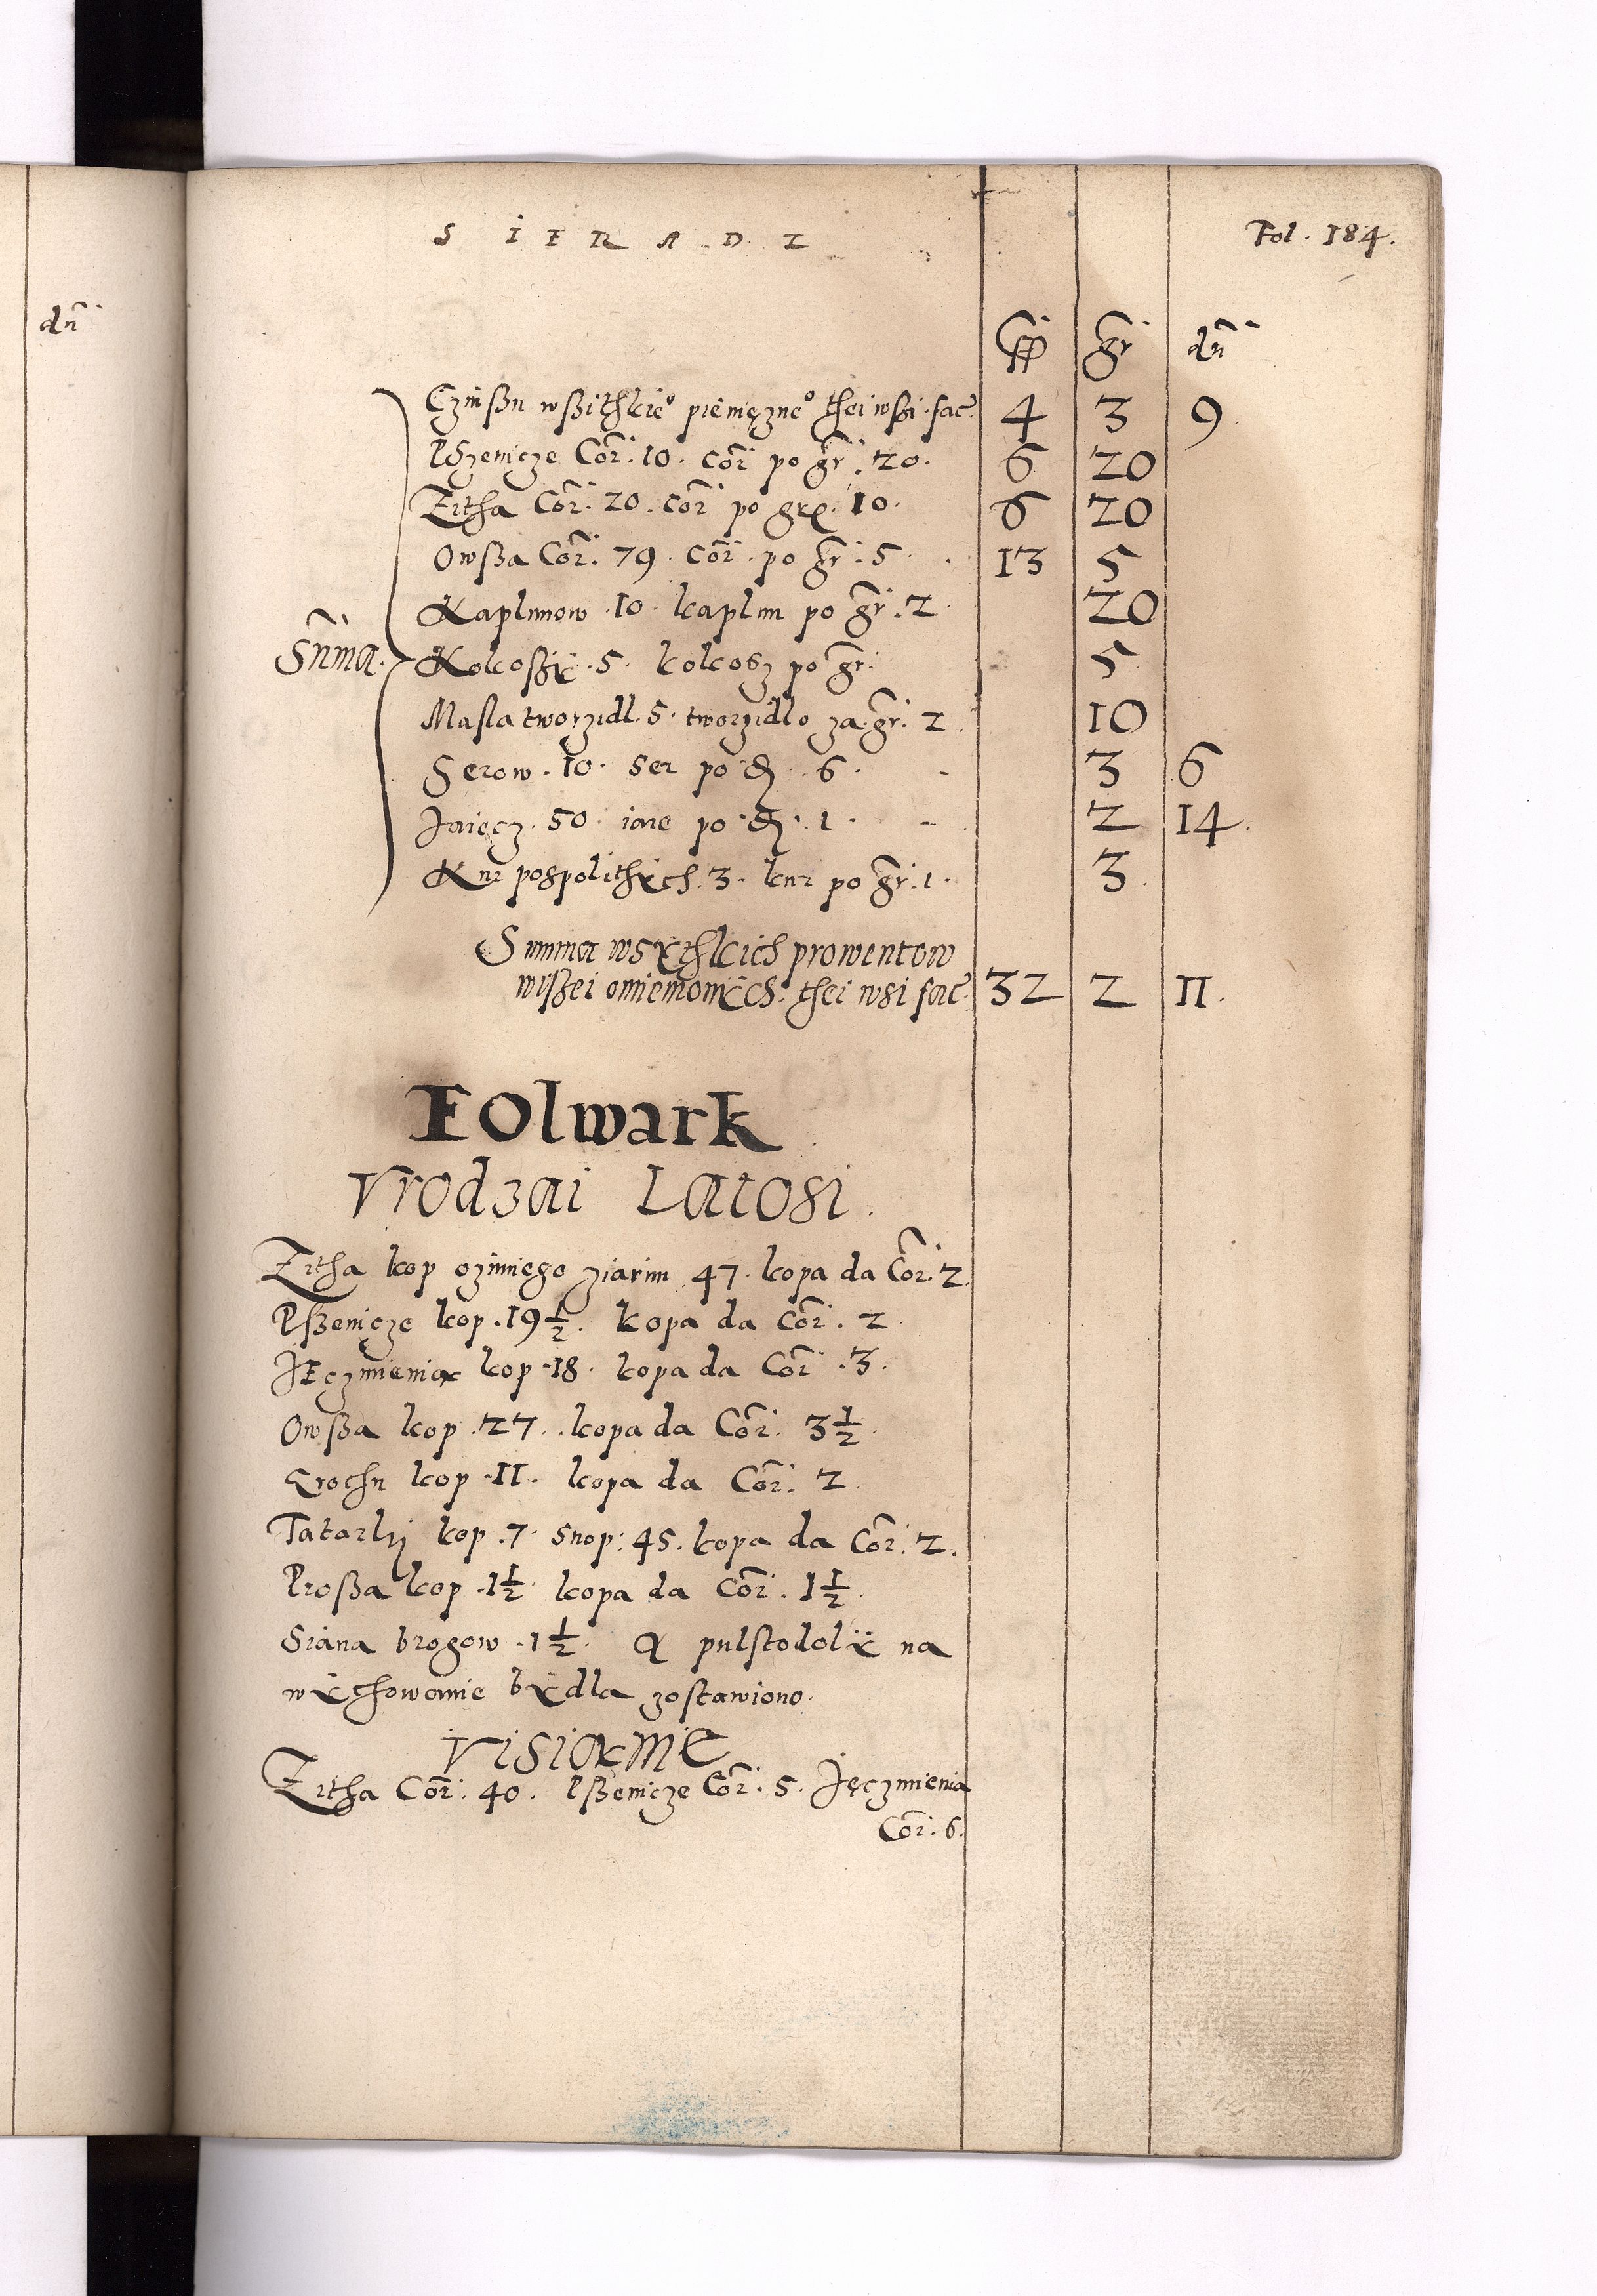 dn̄
S I E R A D Z
Fol. 184.
gr̄ dn̄
Czinßu wßithkie° pieniężne° thei wßi fac̄ 4 3 9
Pszenicze Cor̄. 10. cor̄ po gr̄. 20. 6 20
Zitha Cor̄. 20. cor̄ po gr. 10. 6 20
Owßa Cor̄. 79. cor̄. po gr̄. 5. 13 5
Kaplunow .10. kaplun po gr̄. 2. 20
Sūma. Kokoßÿ .5. kokosz po gr̄. 5
Masla tworzidl. 5. tworzidlo za gr̄. 2. 10
Serow .10. Ser po d. 6. 3 6
Jaiecz. 50. iaie po d. 1. 2 14.
Kur pospolithÿch. 3. kur po gr̄. 1. 3.
Summa wsÿthkich prowentow
wißei omienionÿch. thei wsi fac̄. 32 2 11.
Folwark
Vrodzai Latosi.
Zitha kop ozimiego ziarnn 47. kopa da Cor̄. 2.
Pßenicze kop .19½. kopa da Cor̄. 2.
JEczmienia kop .18. kopa da Cor̄ .3.
Owßa kop .27. kopa da Cor̄. 3½.
Grochu kop .11. kopa da Cor̄. 2.
Tatarki kop .7. snop: 45. kopa da Cor̄. 2.
Proßa kop .1½. kopa da Cor̄. 1½.
Siana brogow .1½. A pulstodolÿ na
wÿchowanie bÿdla zostawiono.
Visianie
Zitha Cor̄: 40. Pßenicze Cor̄. 5. Jęczmienia
Cor̄. 6.